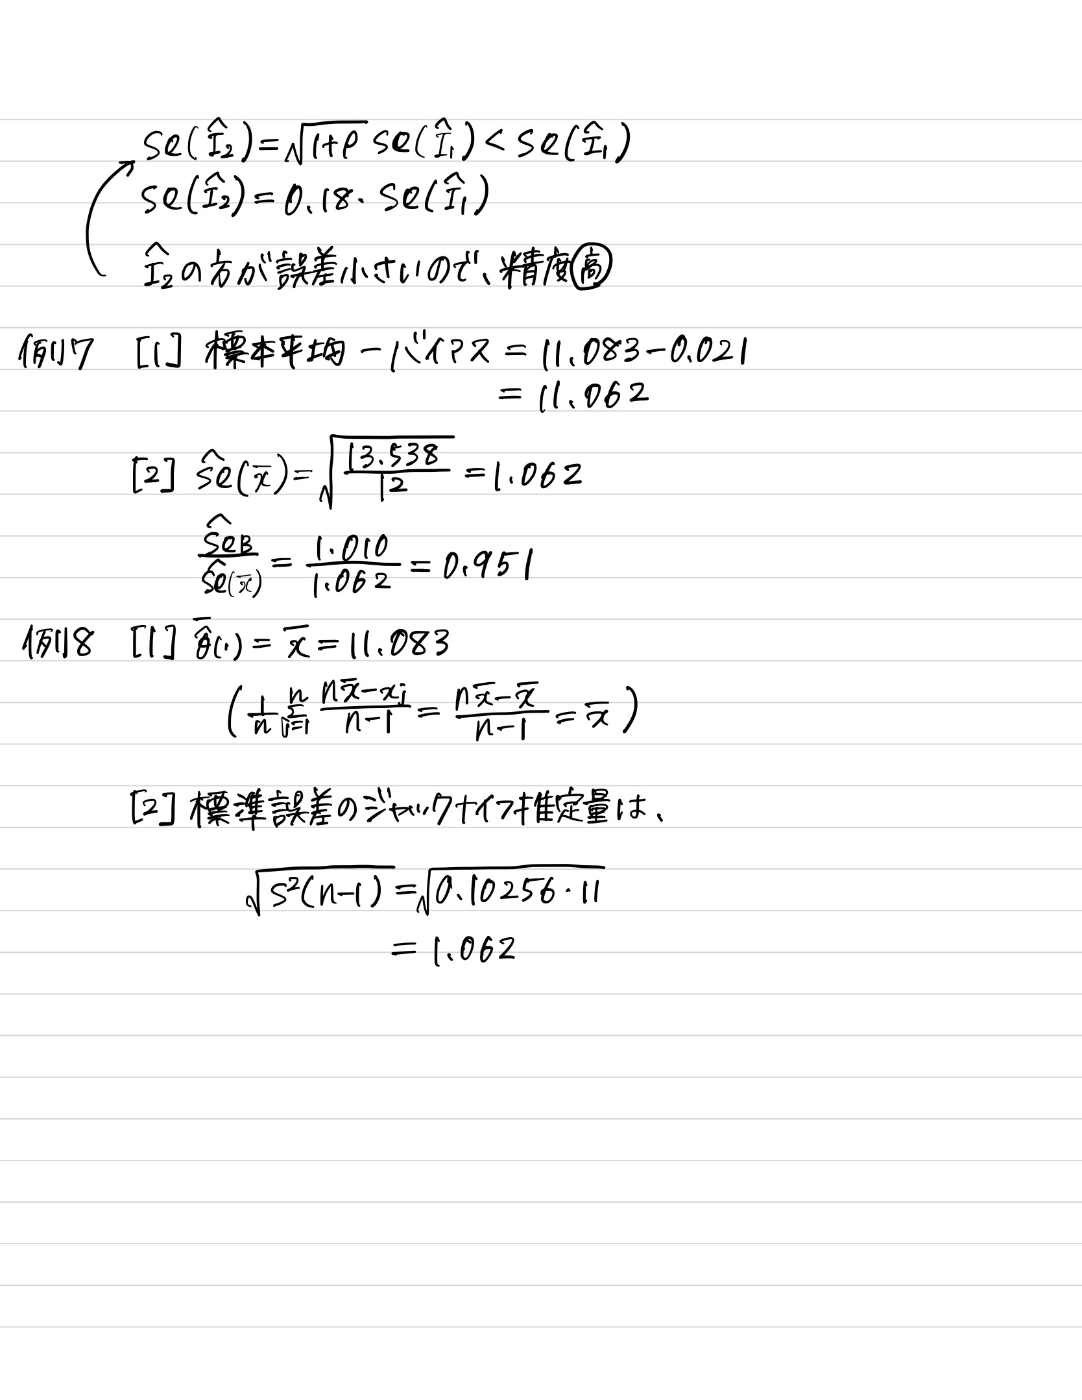 se(Î₂)=√(1+ρ) se(Î₁)<se(Î₁)
se(Î₂)=0.18・se(Î₁)
Î₂の方が誤差小さいので、精度高
例7 [1] 標本平均－バイアス = 11.083-0.021
= 11.062
[2] ŝe(x̄)=√(13.538/12) = 1.062
ŝeB/ŝe(x̄) = 1.010/1.062 = 0.951
例8 [1] θ̂̄(・) = x̄ = 11.083
(1/n Σ[j=1→n] (nx̄-xj)/(n-1) = (nx̄-x̄)/(n-1) = x̄)
[2] 標準誤差のジャックナイフ推定量は、
√(S²(n-1)) = √(0.10256・11)
= 1.062